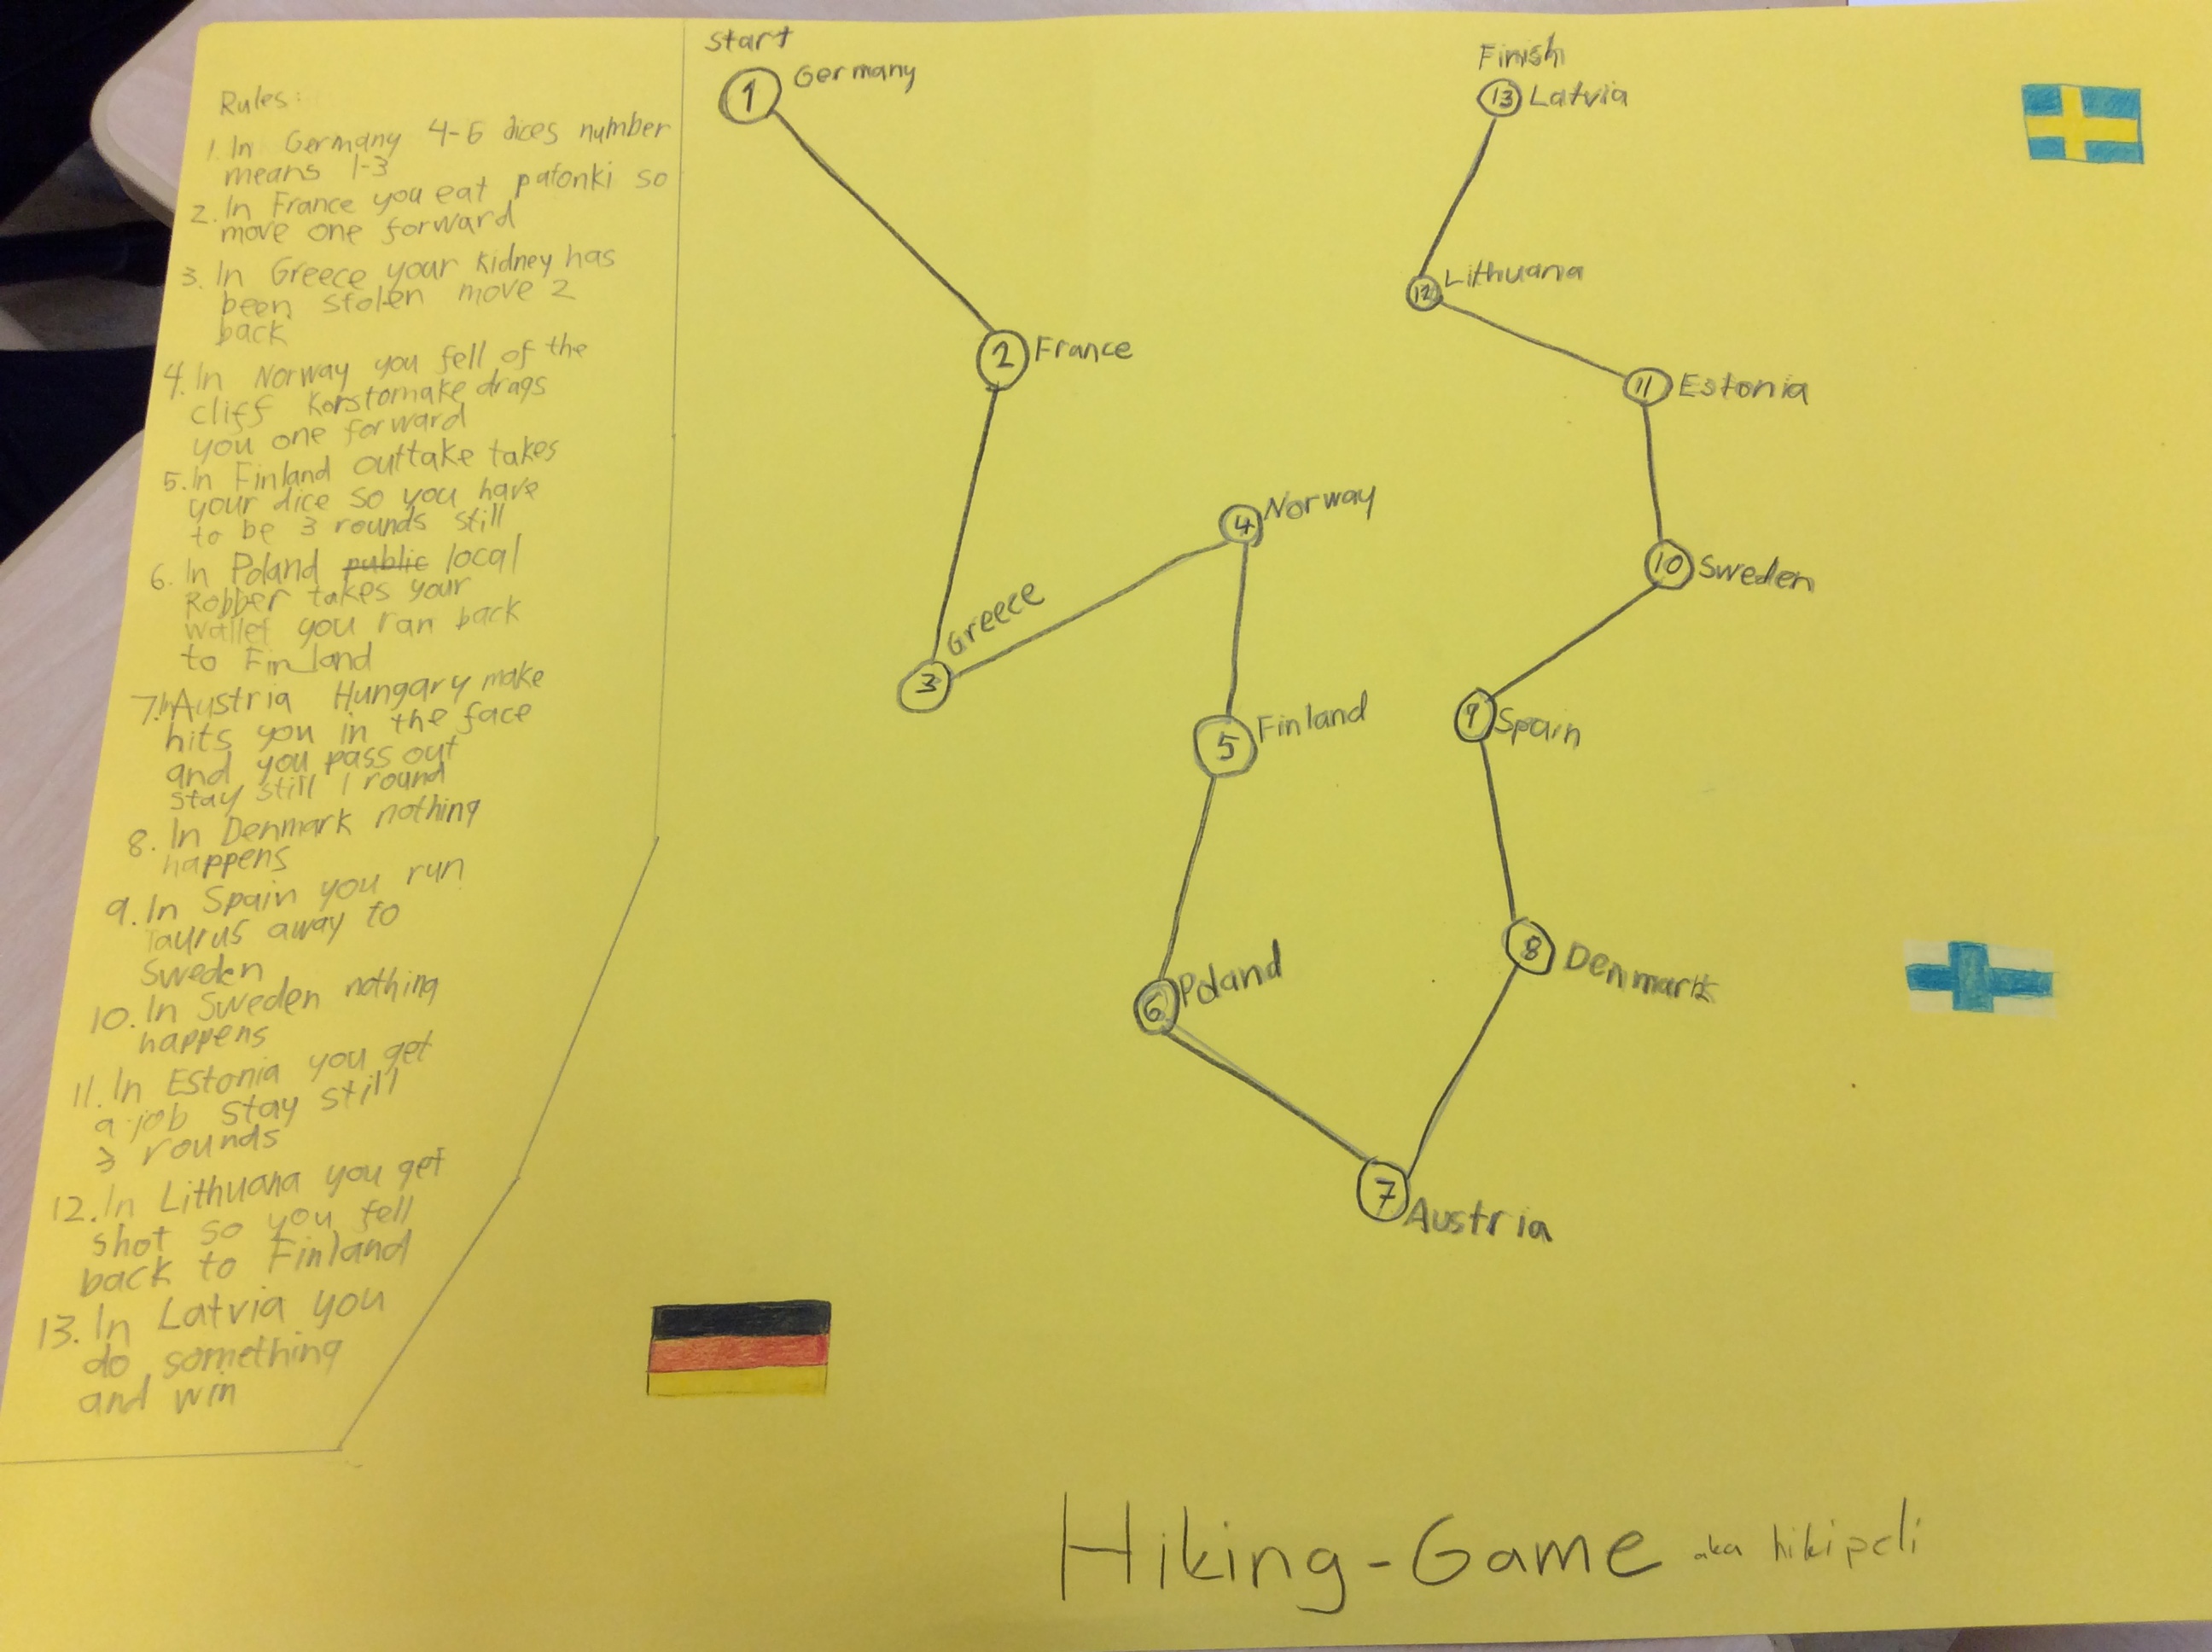 Rules:
1. In Germany 4-6 dices number
means 1-3
2. In France you eat patonki so
move one forward
3. In Greece your kidney has
been stolen move 2
back
4. In Norway you fell of the
cliff Korstomake drags
you one forward
5. In Finland outtake takes
your dice so you have
to be 3 rounds still
6. In Poland public local
Robber takes your
wallet you ran back
to Finland
7. In Austria Hungary make
hits you in the face
and you pass out
stay still 1 round
8. In Denmark nothing
happens
9. In Spain you run
Taurus away to
Sweden
10. In Sweden nothing
happens
11. In Estonia you get
a job stay still
3 rounds
12. In Lithuana you get
shot so you fell
back to Finland
13. In Latvia you
do something
and win
Start
1 Germany
2 France
3 Greece
4 Norway
5 Finland
6 Poland
7 Austria
8 Denmark
9 Spain
10 Sweden
11 Estonia
12 Lithuana
Finish
13 Latvia
Hiking-Game aka hikipeli